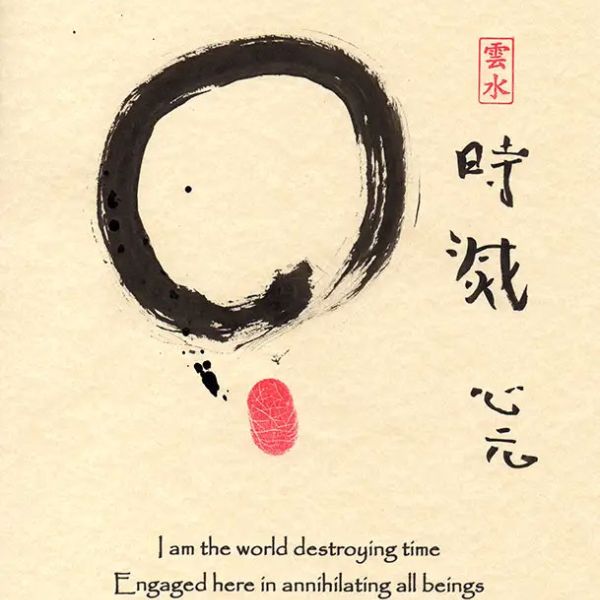 雲水
時滅
心元
I am the world destroying time
Engaged here in annihilating all beings